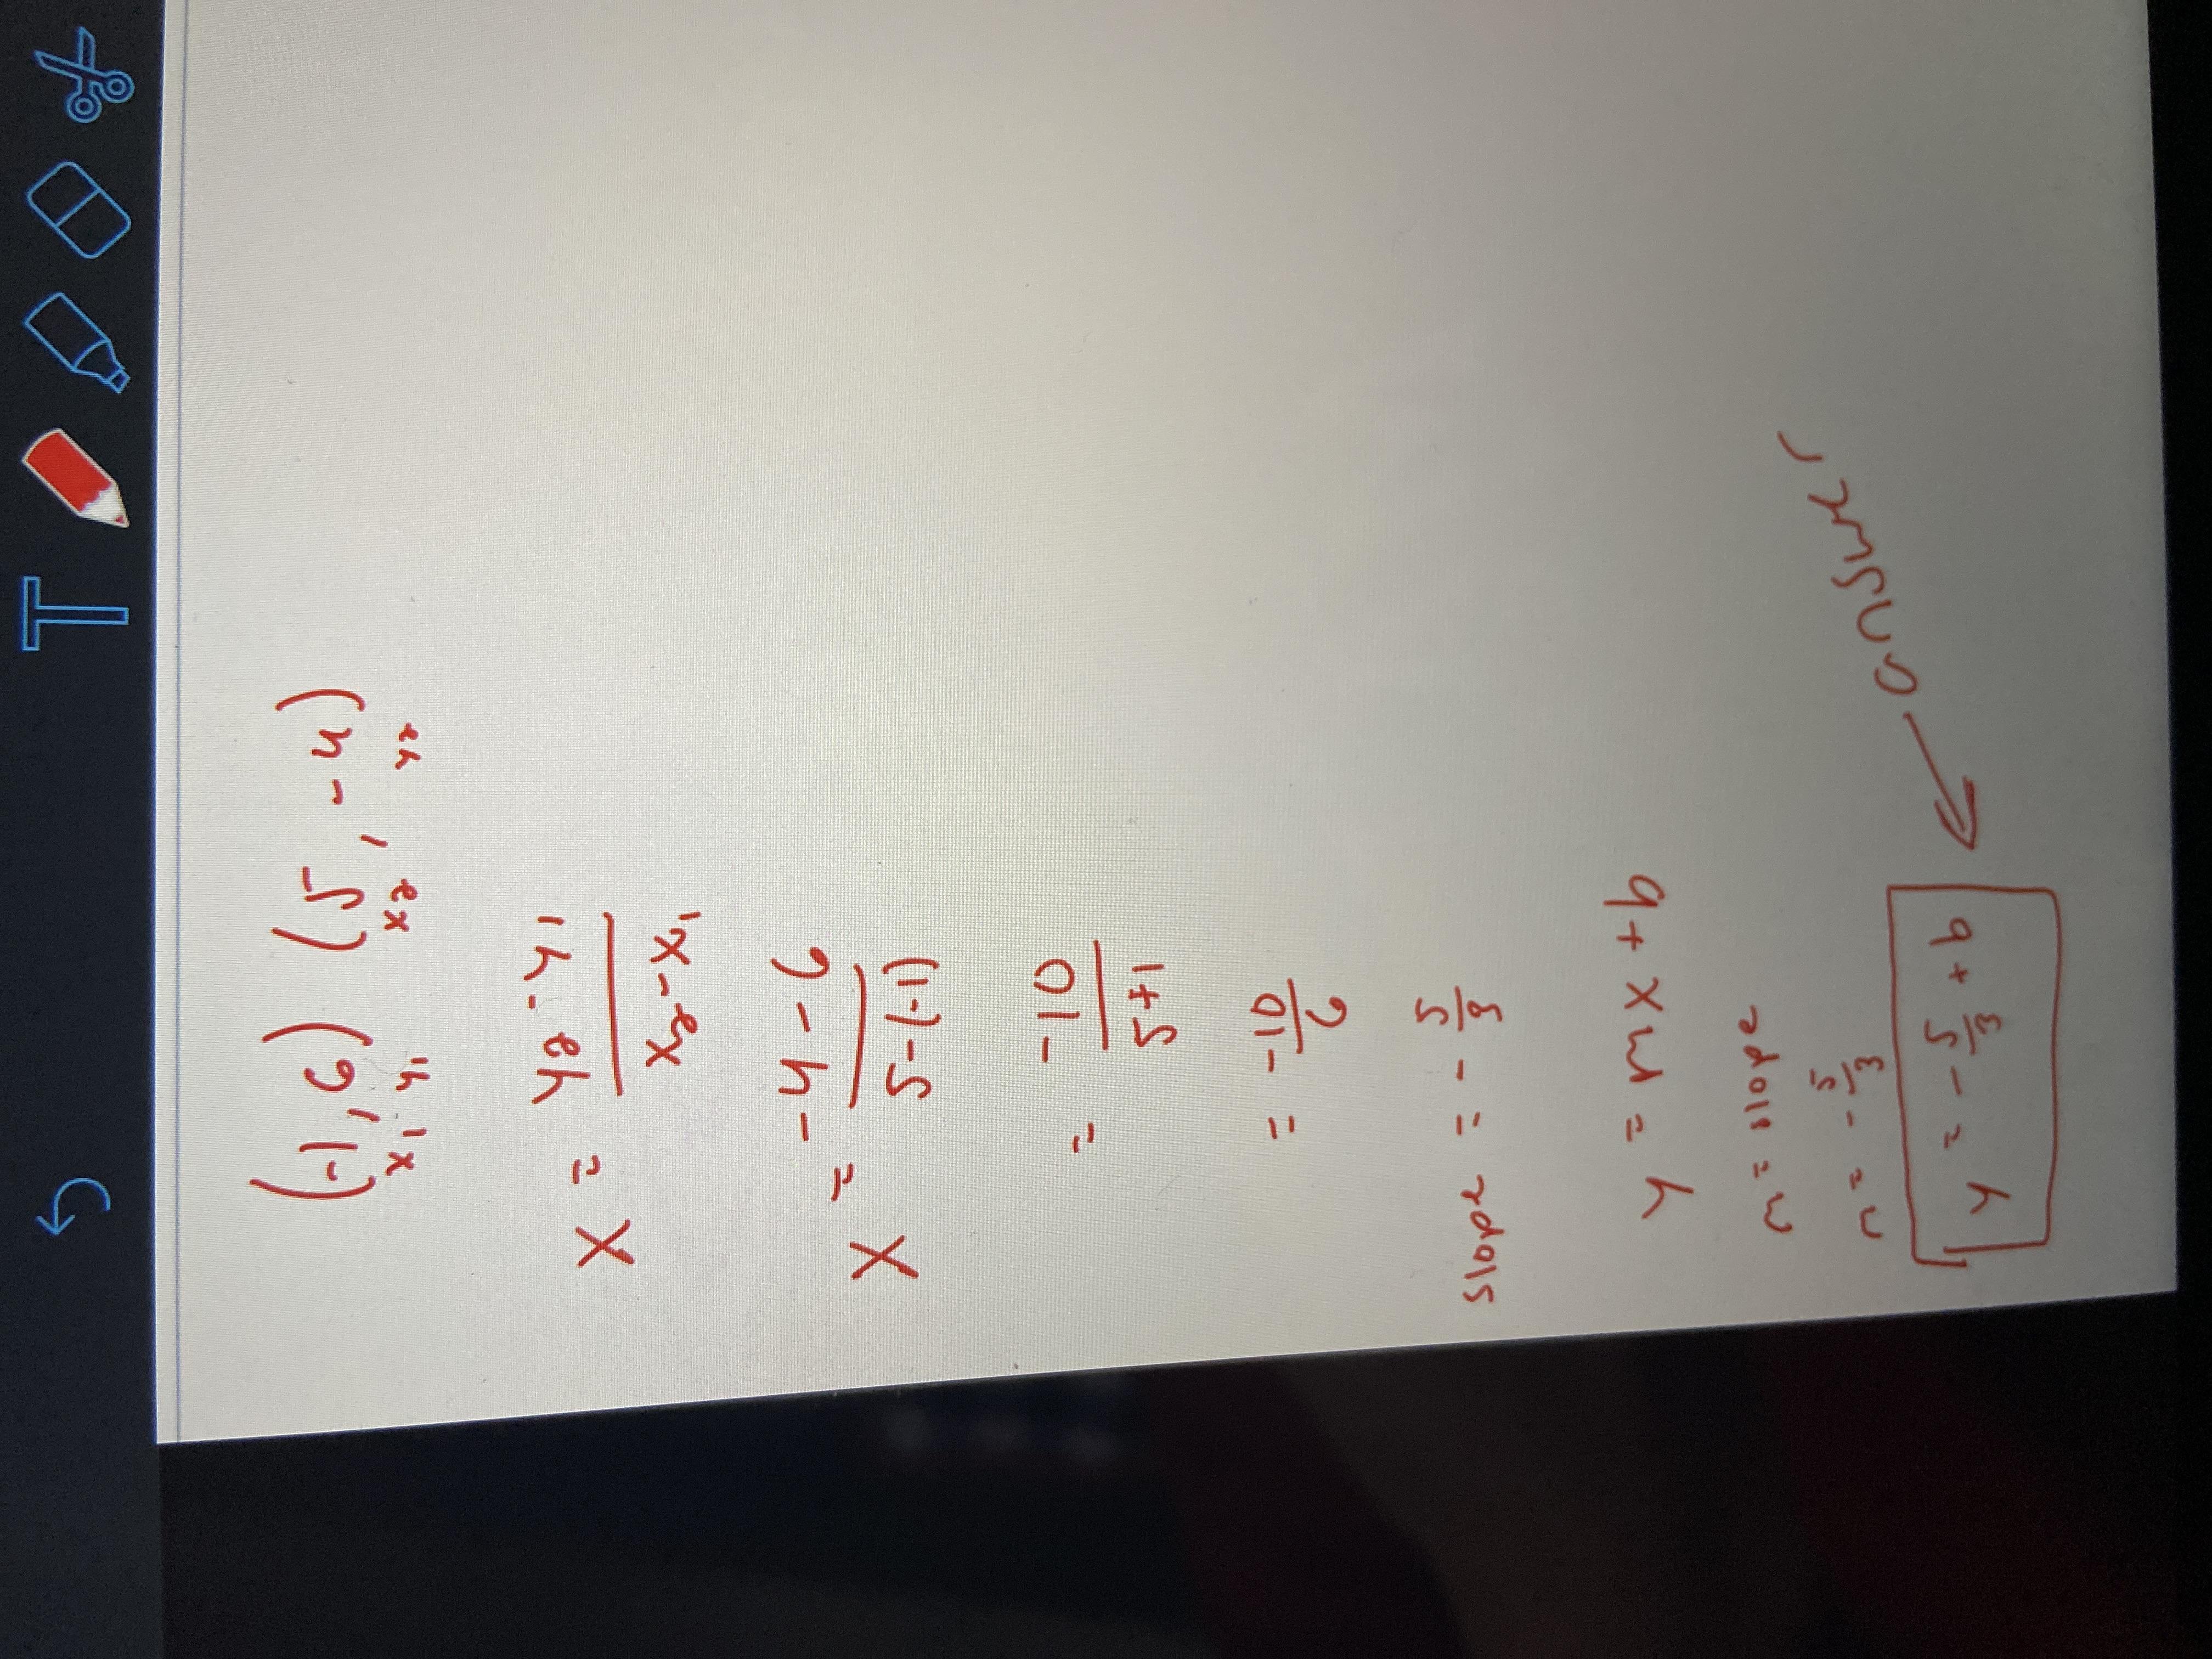 (-1, 6) (5, -4)
x1 y1 x2 y2
X = y2 - y1 / x2 - x1
X = -4 - 6 / 5 - (-1)
= -10 / 5+1
= -10/6
slope = - 5/3
y = mx + b
m = slope
m = - 5/3
y = - 5/3 + b
answer
T